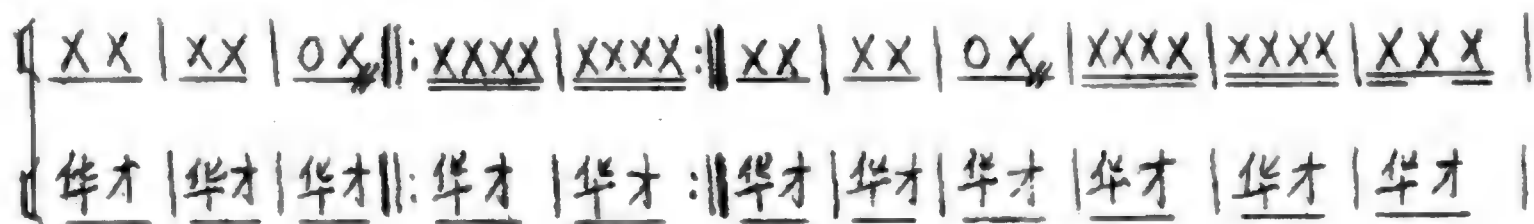 X X | X X | 0 X ‖: X X X X | X X X X :‖ X X | X X | 0 X | X X X X | X X X X | X X X |
华才 | 华才 | 华才 ‖: 华才 | 华才 :‖ 华才 | 华才 | 华才 | 华才 | 华才 | 华才 |